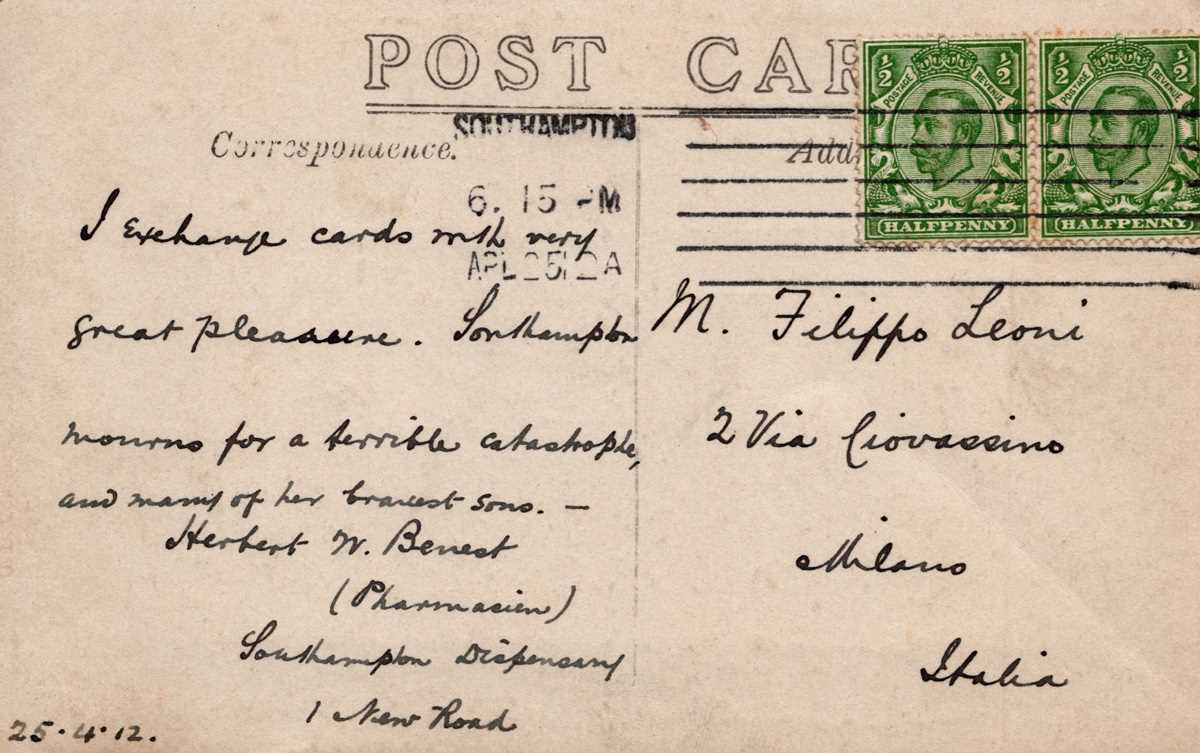 POST CAR
½ ½ ½ ½
POSTAGE REVENUE POSTAGE REVENUE
HALFPENNY HALFPENNY
SOUTHAMPTON
Correspondence.
Add
6. 15 PM
APL 25 12 A
I Exchange cards with very
great pleasure. Southampton
mourns for a terrible catastrophe,
and many of her bravest sons. —
Herbert W. Benest
(Pharmacien)
Southampton Dispensary
1 New Road
25.4.12.
M. Filippo Leoni
2 Via Ciovassino
Milano
Italia